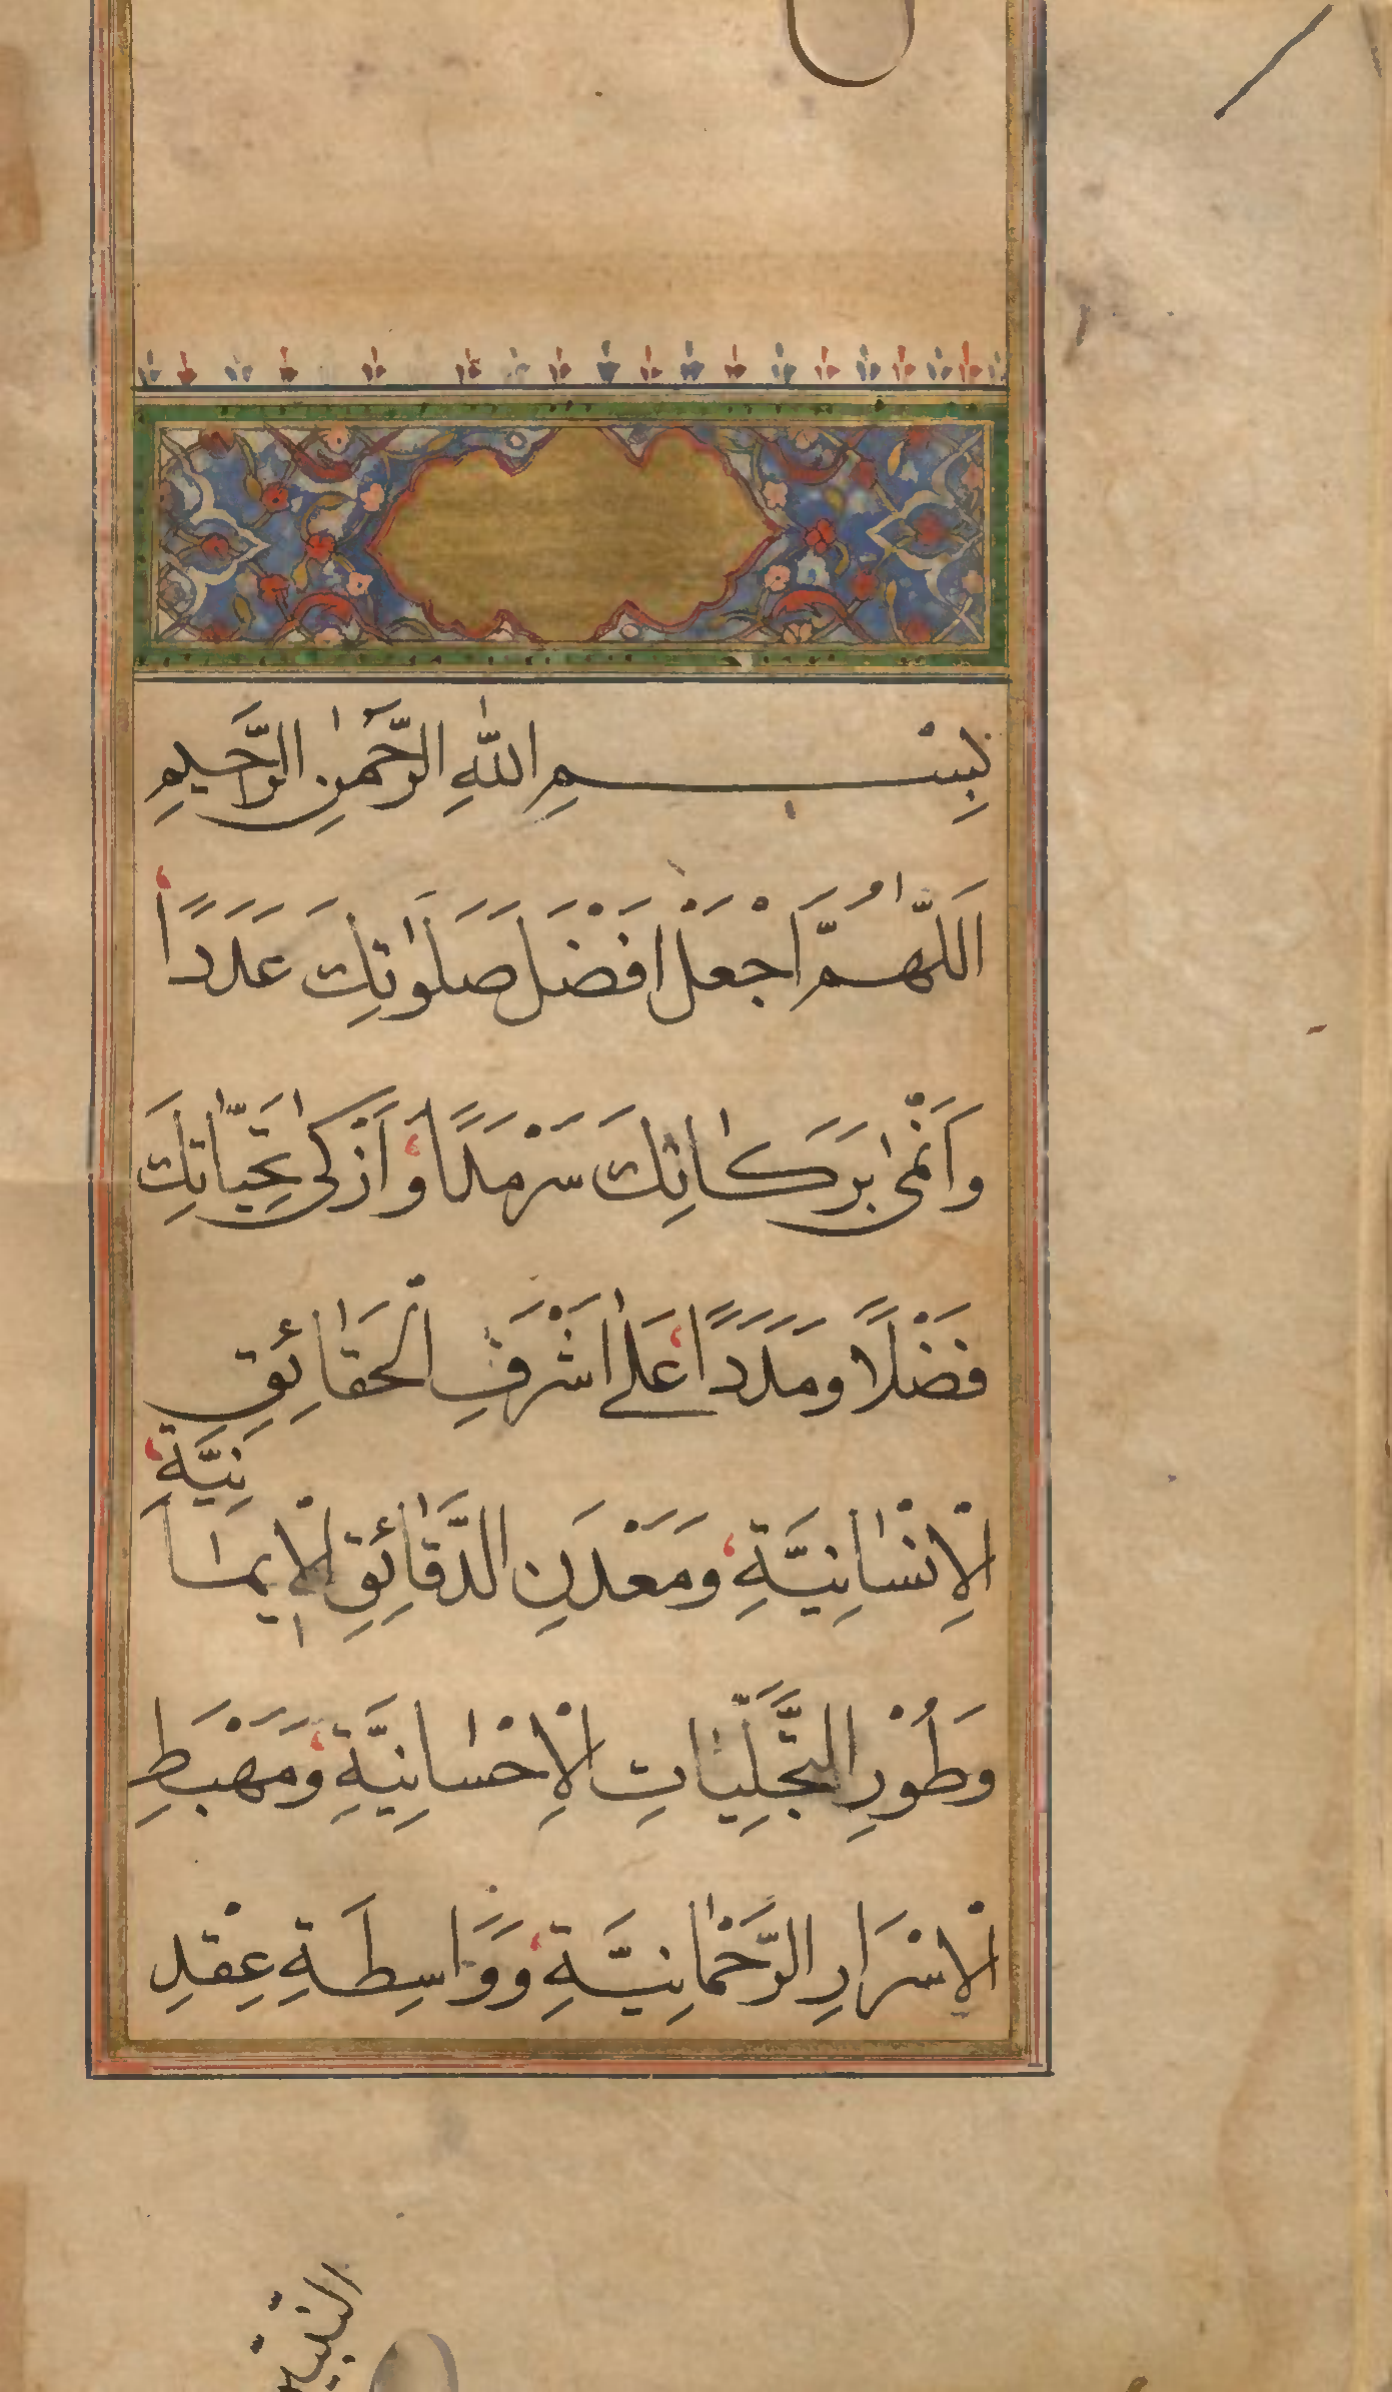 بِسْمِ اللّٰهِ الرَّحْمٰنِ الرَّحِيمِ
اَللّٰهُمَّ اجْعَلْ اَفْضَلَ صَلَوٰاتِكَ عَدَدًا
وَاَنْمىٰ بَرَكٰاتِكَ سَرْمَدًا وَاَزْكىٰ تَحِيّٰاتِكَ
فَضْلًا وَمَدَدًا عَلىٰ اَشْرَفِ الْحَقٰائِقِ
الْاِنْسٰانِيَّةِ وَمَعْدَنِ الدَّقٰائِقِ الْاِيمٰانِيَّةِ
وَطُوْرِ التَّجَلِّيٰاتِ الْاِحْسٰانِيَّةِ وَمَهْبَطِ
الْاَسْرَارِ الرَّحْمٰانِيَّةِ وَوَاسِطَةِ عِقْدِ